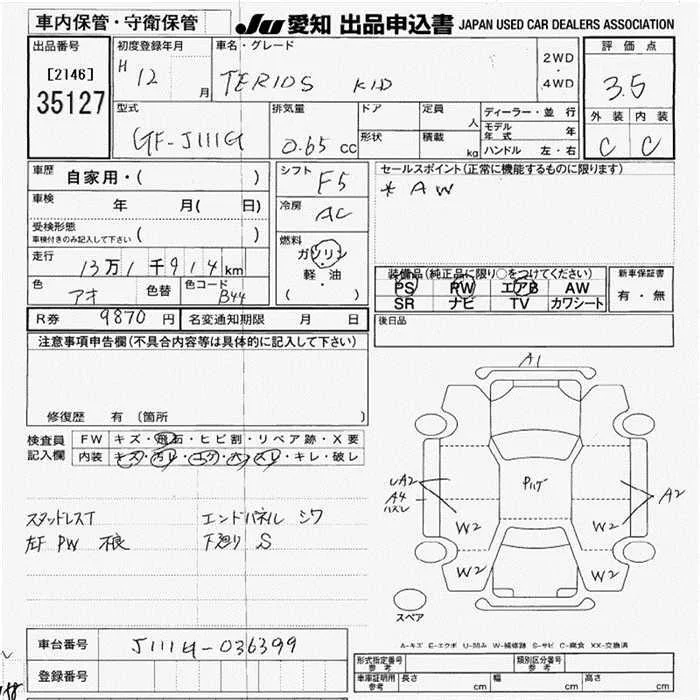 車内保管・守衛保管
JU 愛知 出品申込書 JAPAN USED CAR DEALERS ASSOCIATION
出品番号
[2146]
35127
初度登録年月
H 12 月
車名・グレード
TERIOS KID
2WD
・
4WD
評価点
3.5
外装 内装
C C
型式
GF-J111G
排気量
0.65 cc
ドア
形状
定員
人
積載
kg
ディーラー・並 行
モデル年式 年
ハンドル 左・右
車歴
自家用・( )
車検
年 月( 日)
受検形態
車検付きのみ記入して下さい ( )
走行
13万1千914km
色
アオ
色替
色コード
B44
シフト
F5
冷房
AC
燃料
ガソリン
・
軽・油
( )
セールスポイント(正常に機能するものに限ります)
* AW
装備品(純正品に限り○をつけてください)
PS PW エアB AW
SR ナビ TV カワシート
新車保証書
有・無
R券 9870 円
名変通知期限 月 日
後日品
注意事項申告欄(不具合内容等は具体的に記入して下さい)
修復歴 有 〔箇所 〕
検査員記入欄
FW キズ・飛石・ヒビ割・リペア跡・X要
内装 キズ・汚レ・コゲ・穴・スレ・キレ・破レ
スタッドレスT
左F PW 不良
エンドパネル シワ
下廻り S
A1
UA2
A4
ハズレ
W2
W2
W2
W2
A2
スペア
A-キズ E-エクボ U-凹み W-補修跡 S-サビ C-腐食 XX-交換済
車台番号 J111G-036399
登録番号
形式指定番号 参考
類別区分番号 参考
車庫証明用 参考
長さ cm 幅 cm 高さ cm